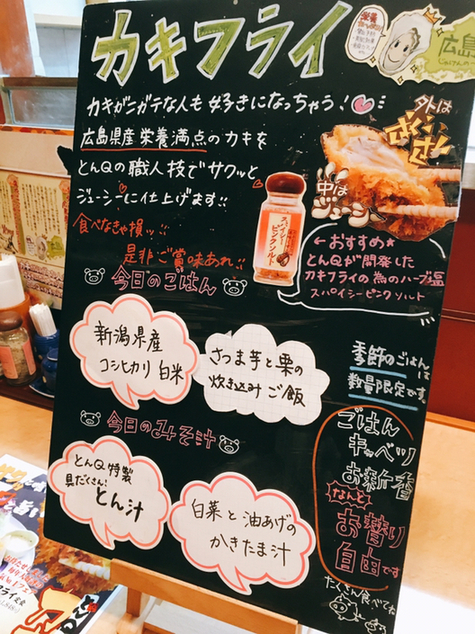 カキフライ
広島
カキがニガテな人も好きになっちゃう!
広島県産栄養満点のカキを
とんQの職人技でサクッと
ジューシーに仕上げます!!
食べなきゃ損ッ!!
是非ご賞味あれ!!
外は
さくさく
中は
ジューシー
スパイシー
ピンクソルト
←おすすめ★
とんQが開発した
カキフライの為のハーブ塩
スパイシーピンクソルト
今日のごはん
新潟県産
コシヒカリ 白米
さつま芋と栗の
炊き込みご飯
季節のごはんは
数量限定です。
今日のみそ汁
とんQ特製
具だくさん!
とん汁
白菜と油あげの
かきたま汁
ごはん
キャベツ
お新香
なんと
お替り
自由です
たくさん食べてね